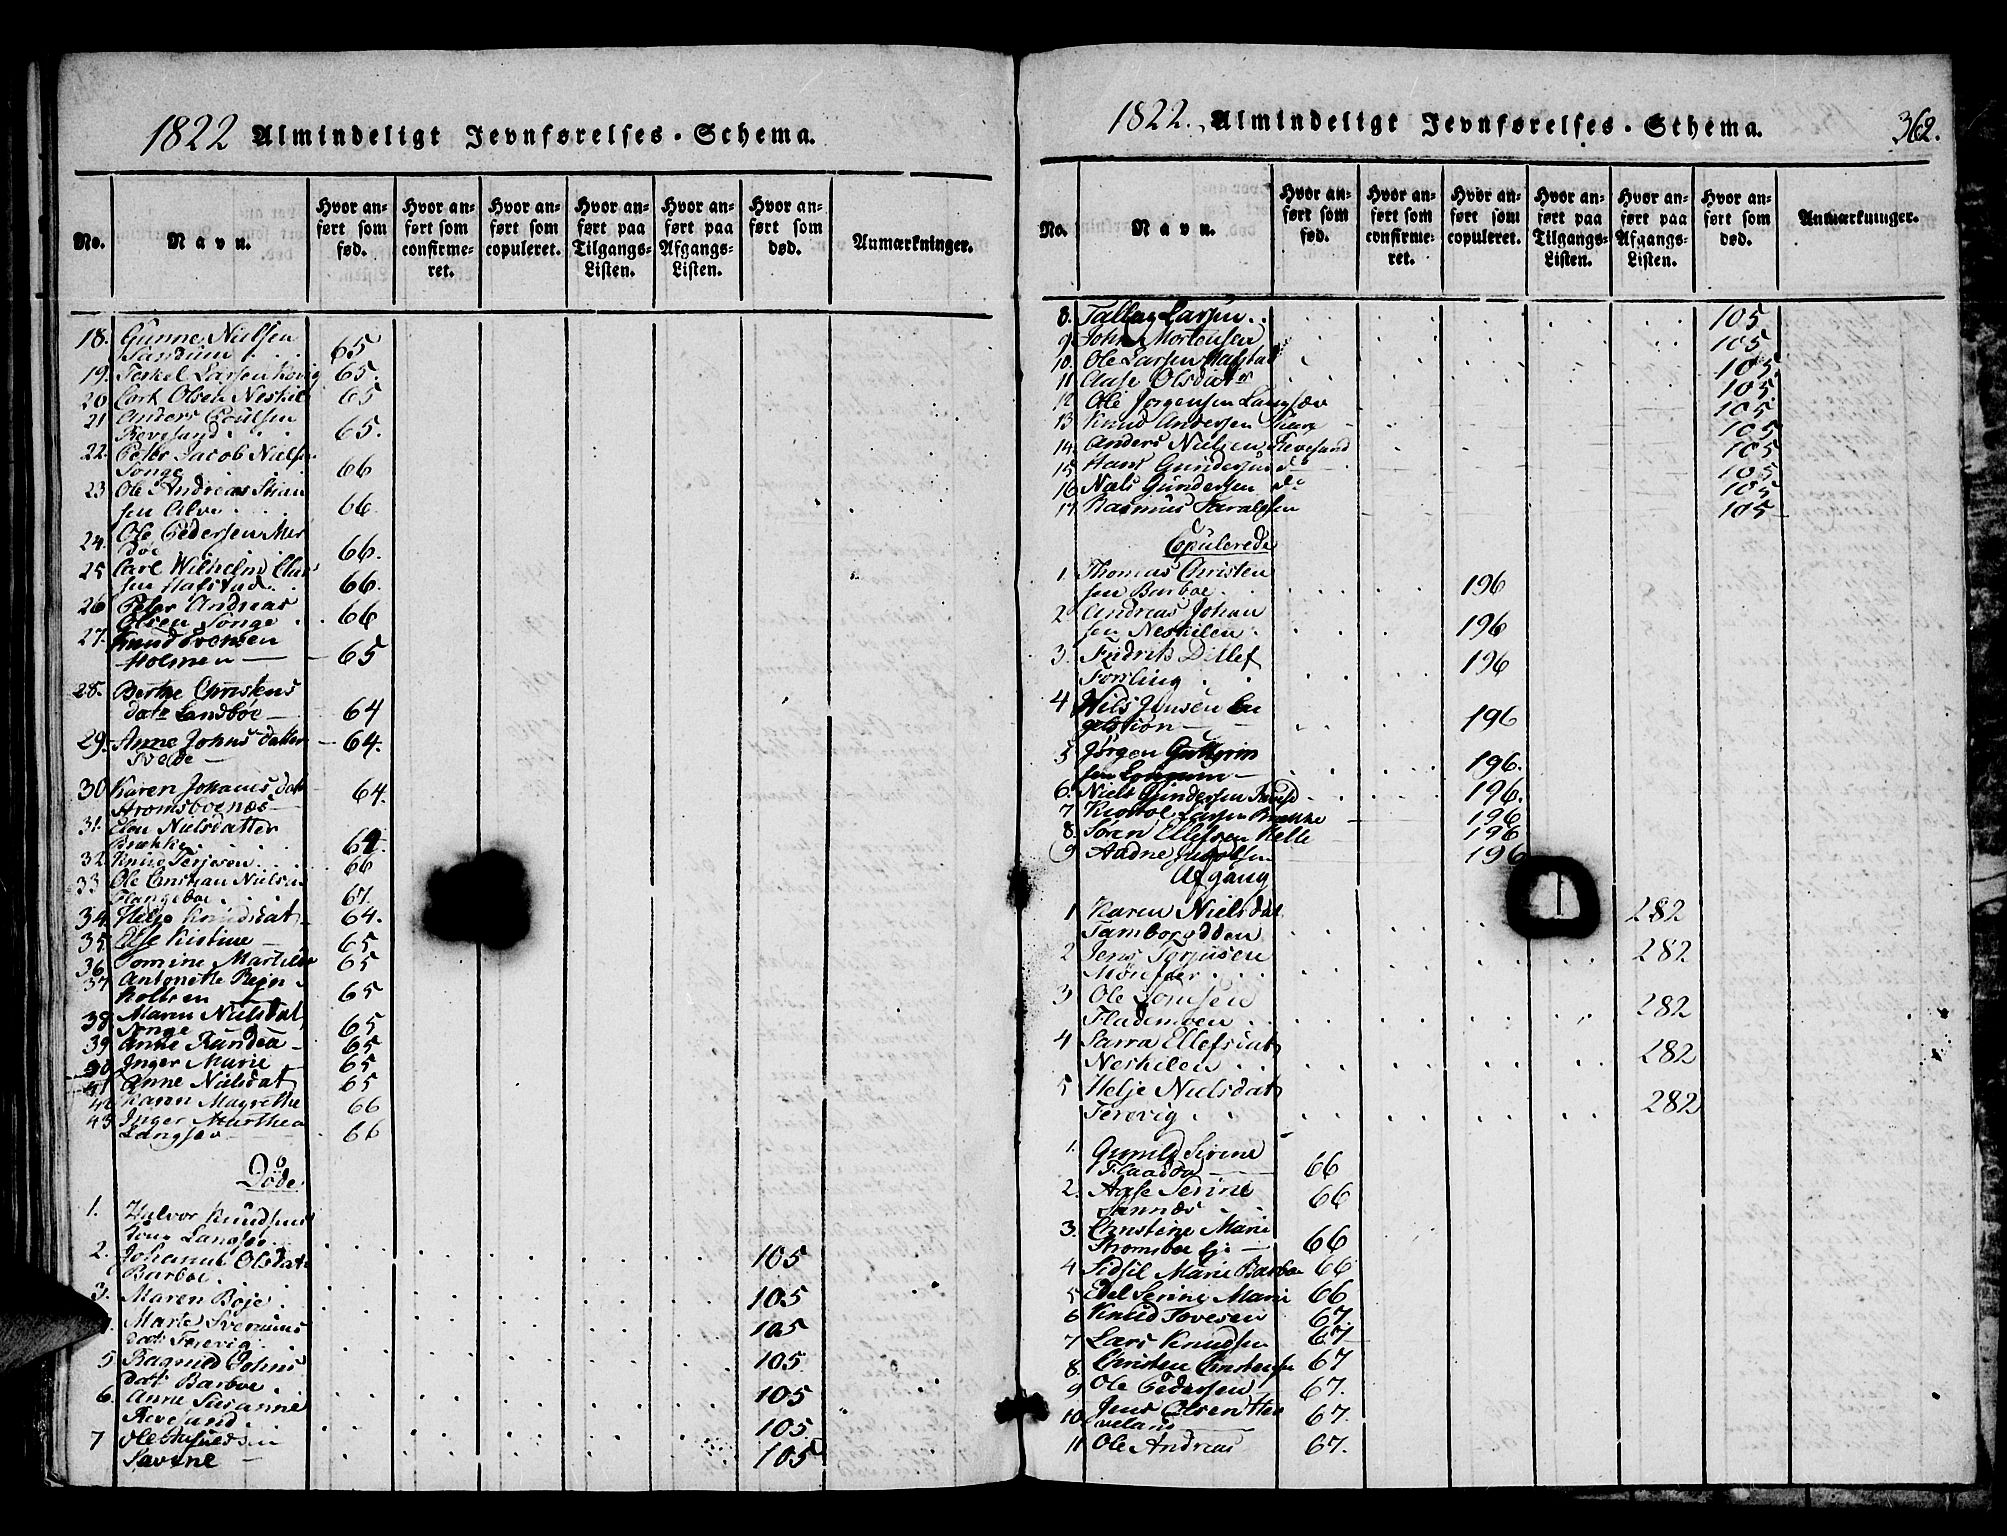 1822 Almindeligt Jevnførelses-Schema.
No.
Navn.
Hvor anført som fød.
Hvor anført som confirmeret.
Hvor anført som copuleret.
Hvor anført paa Tilgangs-Listen.
Hvor anført paa Afgangs-Listen.
Hvor anført som død.
Anmærkninger.
18. Gunne Nielsen
Sandum 65
19. Terkel Larsen 65.
20 Olsen 65
21 Anders Poulsen
Revesand 65.
22. Peter Jacob Nielsen
Songe 66
23 Ole Andreas
sen Alve 66
24. Ole Pedersen Mer
døe 66.
25 Carl Wilhelm
sen Hafstad 66.
26 Peter Andreas
Olsen Songe 66
27. Knud Svensen
Holmen 65
28. Berthe Christens
datr Sandbøe 64
29. Anne Johns datter 64.
30 Karen Johannes dat
Strømsboenæs 64.
31. Nielsdatter
Brække 64.
32. Knud Terjesen 66
33 Ole Christian Nielsen
Flangeboe 67.
34. Helje Knudsdat 64.
35. Else Kistine 65
36. Tomine Mathilde 65
37 Antonette Rejn
holtsen 65
38. Maren Nielsdat
Songe 65
39 Anne Randea 65
40 Inger Marie 65
41 Anne Nielsdat 65
42 Karen Magrethe 66
43 Inger Marthea
Langsev 66
Døde
1. Halvor Knudsens
2. Johanne Olsdat
Barboe 105
3. Maren Boje 105
Marte
dat Terevig 105
5 Ragnild Johns
dat Barboe 105
6. Anne Susanne
Revesand 105
7 Ole
Savene 105
1822. Almindeligt Jevnførelses-Schema. 362.
No.
Navn.
Hvor anført som fød.
Hvor anført som confirmeret.
Hvor anført som copuleret.
Hvor anført paa Tilgangs-Listen.
Hvor anført paa Afgangs-Listen.
Hvor anført som død.
Anmærkninger.
8. Tallag Larsen 105
9 John Mortensen 105
10. Ole Larsen Hafstad 105
11 Aase Olsdatr 105
12 Ole Jørgensen Langsæv 105
13 Knud Andersen 105
14. Anders Nielsen Revesand 105
15 Hans Gundersen do 105
16 Niels Gundersen do 105
17. Rasmus Taraldsen 105
Copulerede
1 Thomas Christen
sen Barboe 196
2 Andreas Johan
sen Neskilen 196
3. Fridrik Ditlef
Forsling 196
4 Niels Jensen En
gelstion 196
5 Jørgen Guttorm
sen Longum 196.
6. Niels Gundersen 196.
7 Larsen Brække 196
8. Søren Ellefsen Kelle 196
9 Aadne 196
Afgang
1 Karen Nielsdat 282
2 Jens Torjusen 282
3 Ole
Flademoen 282
4 Sarra Ellefsdat
Neskilen 282
5 Helje Nielsdat
Terevig 282
1. Gunild Sirine 66
2. Aase Serine
Sannæs 66
3. Christine Marie
Strømsboe Eje 66
4 Sidsil Marie Barboe 66
5 Edel Serine Marie 66
6 Knud Tovesen 67.
7 Lars Knudsen 67
8. Christen Christensen 67
9 Ole Pedersen 67.
10 Jens Olsen 67.
11 Ole Andreas 67.